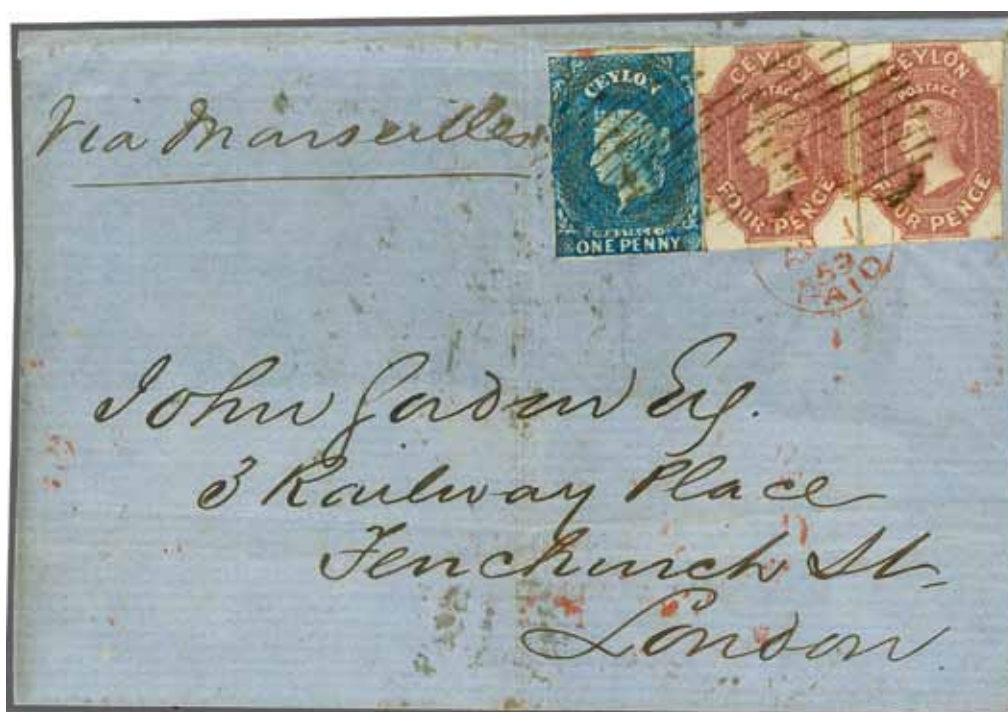 Via Marseilles
CEYLON
ONE PENNY
CEYLON
POSTAGE
FOUR PENCE
CEYLON
POSTAGE
FOUR PENCE
1
59
PAID
John Esq.
3 Railway Place
Fenchurch St.
London